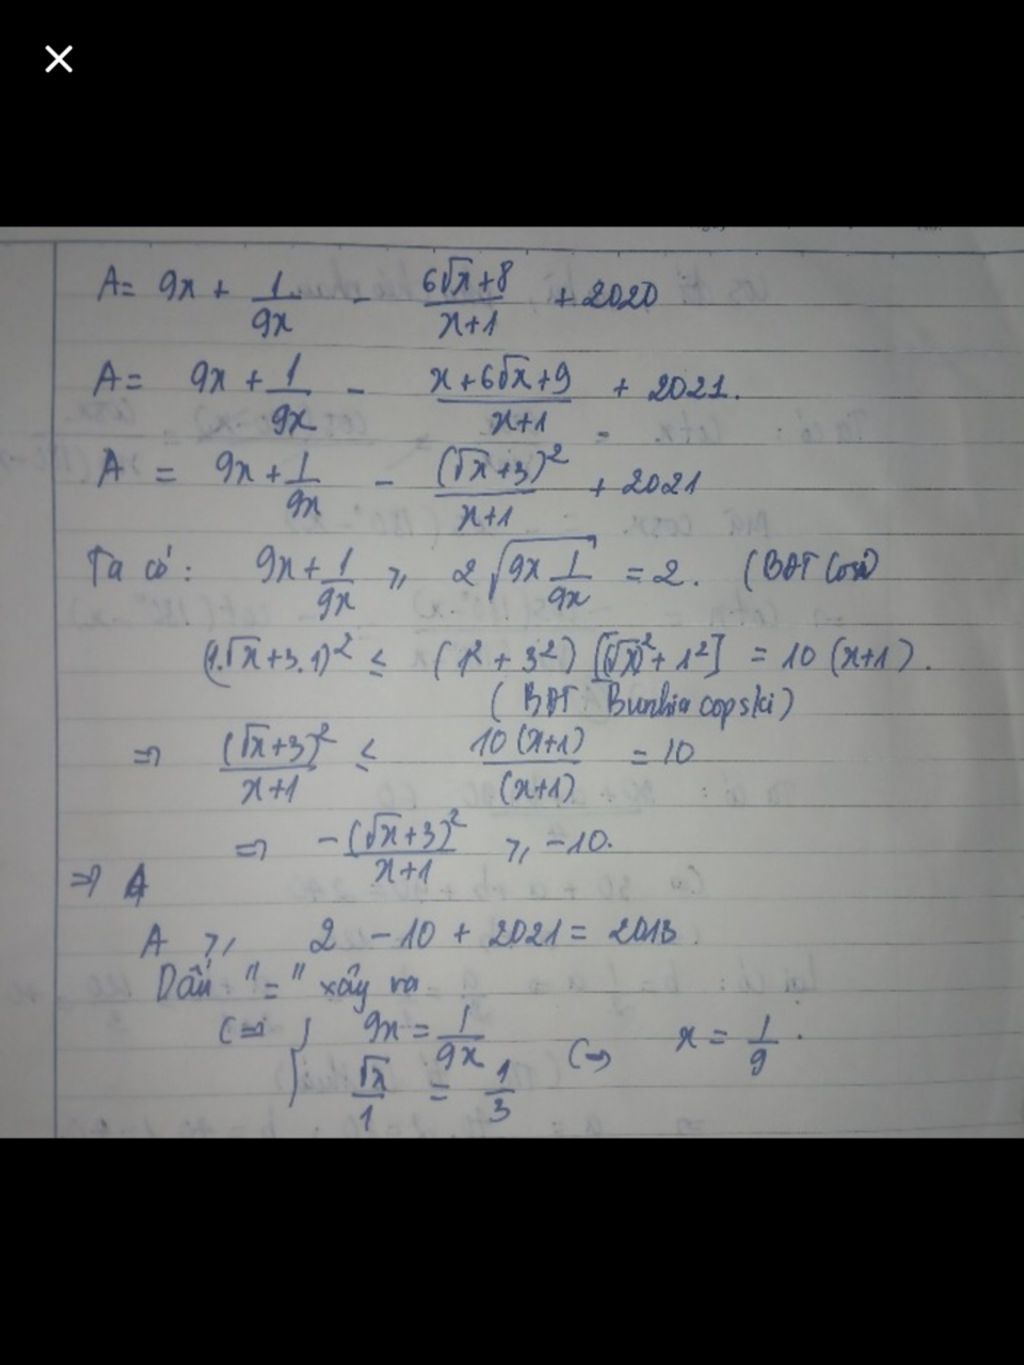 A = 9x + 1/9x - (6√x+8)/(x+1) + 2020
A = 9x + 1/9x - (x+6√x+9)/(x+1) + 2021.
A = 9x + 1/9x - (√x+3)²/(x+1) + 2021
Ta có: 9x + 1/9x ≥ 2√(9x 1/9x) = 2. (BĐT Cosi)
(1.√x+3.1)² ≤ (1² + 3²) [(√x)² + 1²] = 10 (x+1).
(BĐT Bunhia copski)
⇒ (√x+3)²/(x+1) ≤ 10(x+1)/(x+1) = 10
⇒ -(√x+3)²/(x+1) ≥ -10.
⇒ A
A ≥ 2 - 10 + 2021 = 2013
Dấu "=" xảy ra
⇔ { 9x = 1/9x
√x/1 = 1/3 ⇔ x = 1/9.